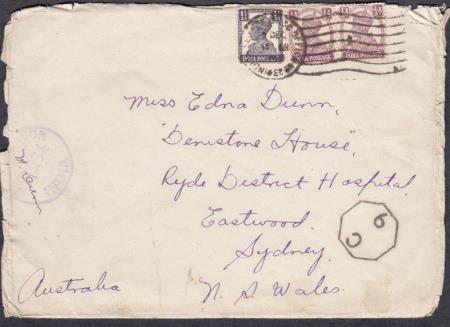 INDIA POSTAGE INDIA POSTAGE INDIA POSTAGE
DEC
Miss Edna Dunn,
"Denistone House",
Ryde District Hospital
Eastwood.
Sydney.
N. S. Wales.
Australia